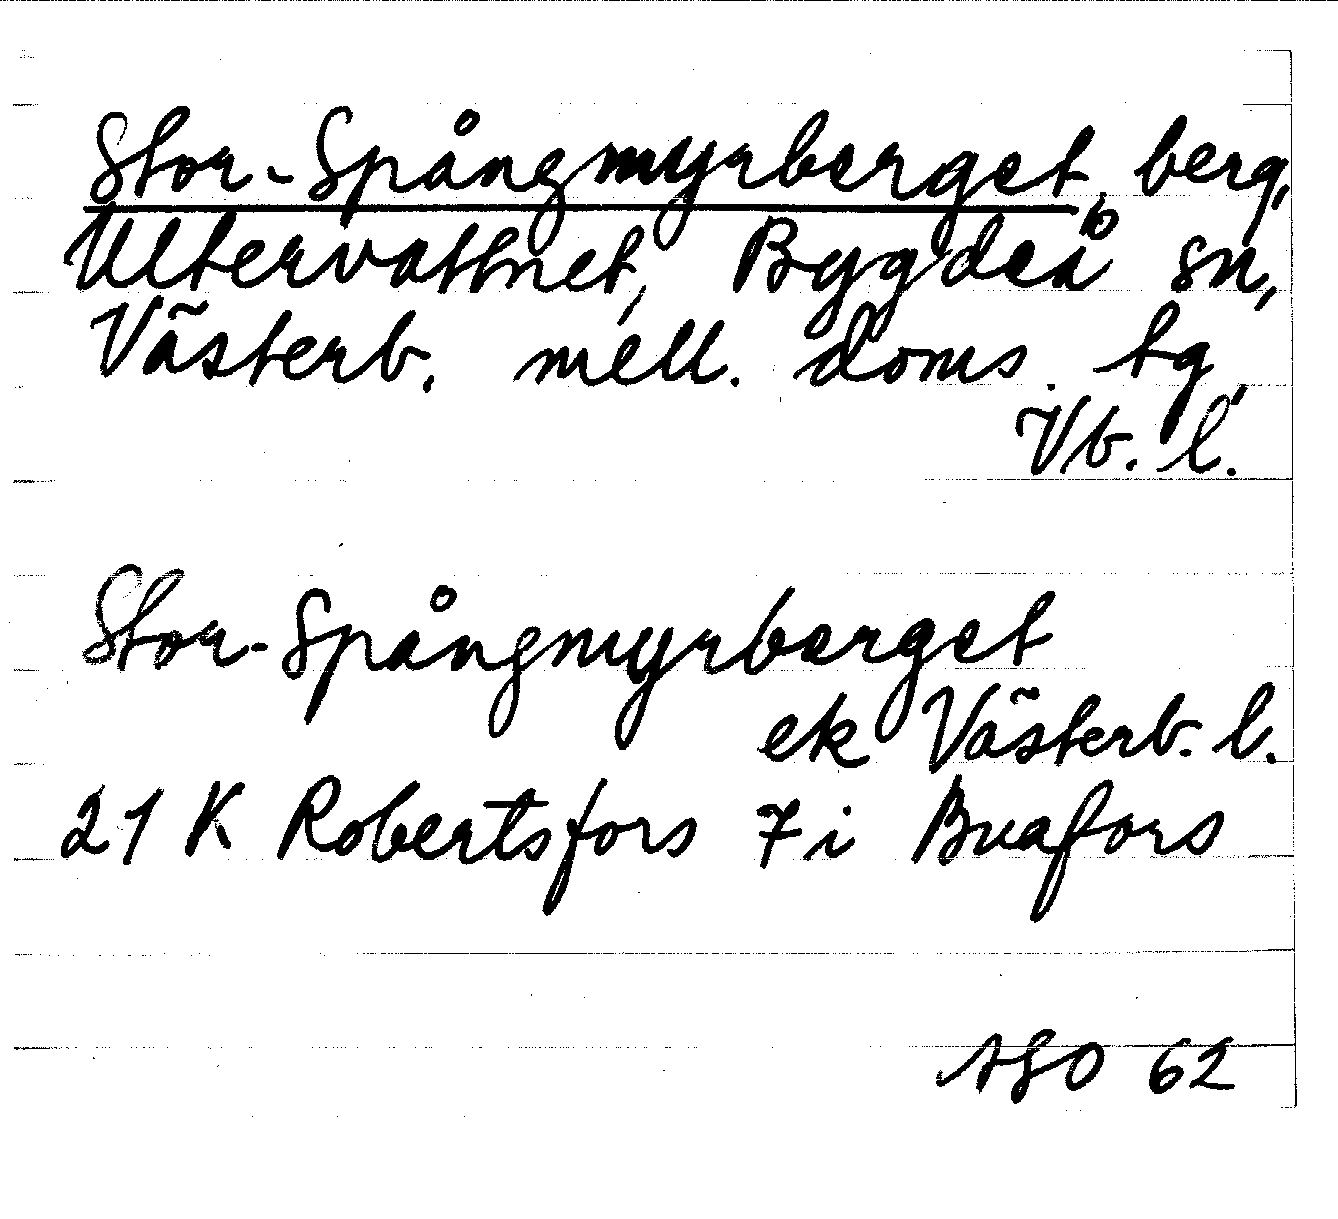 Stor-Spångmyrberget, berg,
Ultervattnet, Bygdeå sn,
Västerb. mell. doms. tg,
Vb. l.
Stor-Spångmyrberget
ek Västerb. l.
21 K Robertsfors 7 i Buafors
ASO 62